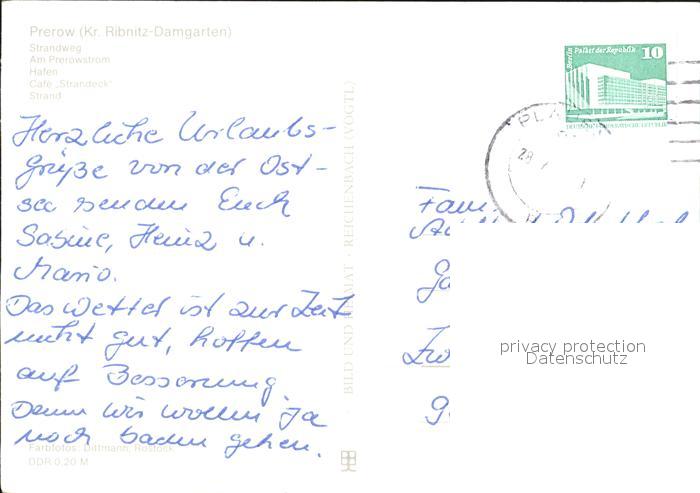 Prerow (Kr. Ribnitz-Damgarten)
Strandweg
Am Prerowstrom
Hafen
Café „Strandeck"
Strand
Herzliche Urlaubs-
grüße von der Ost-
see senden Euch
Sabine, Heinz u.
Mario.
Das Wetter ist zur Zeit
nicht gut, hoffen
auf Besserung.
Denn wir wollen ja
noch baden gehen.
Farbfotos: Dittmann, Rostock
DDR 0,20 M
BILD UND HEIMAT · REICHENBACH (VOGTL)
Berlin Palast der Republik 10
DEUTSCHE DEMOKRATISCHE REPUBLIK
28
Fam.
privacy protection
Datenschutz